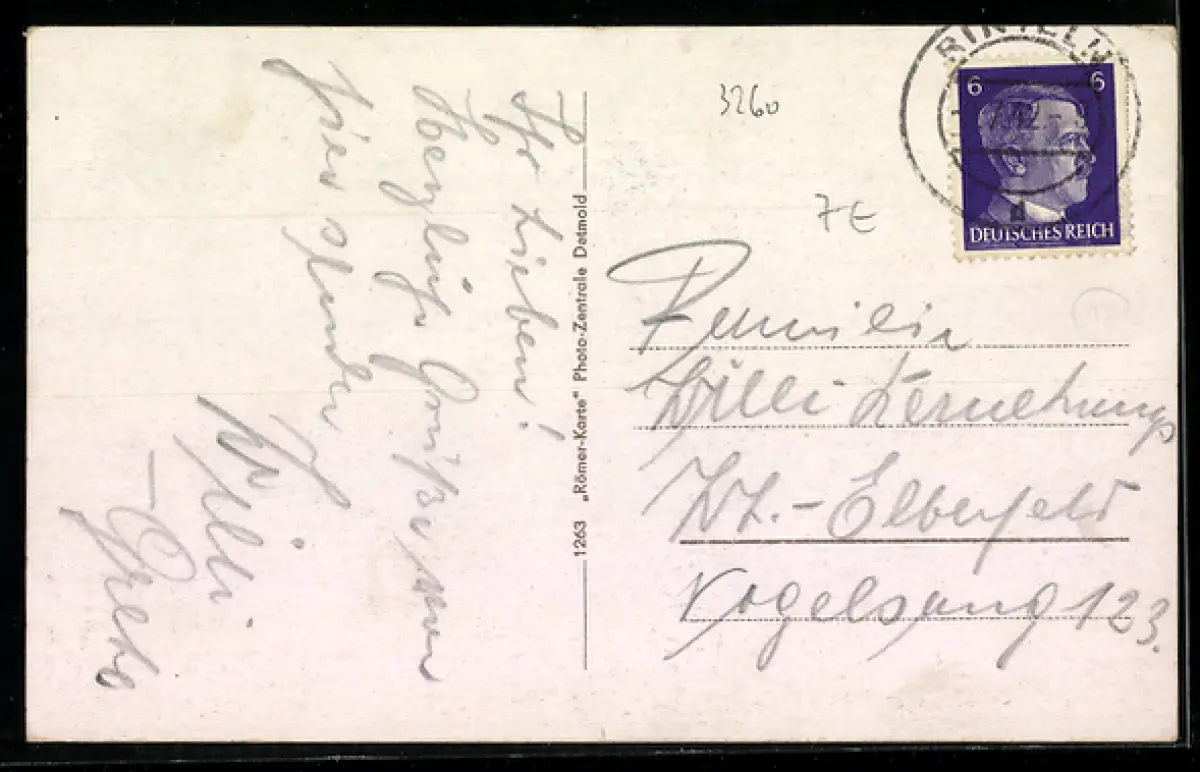 Ihr Lieben!
Herzliche Grüße von
hier senden
Willi
– Greta
1263 „Römer-Karte“ Photo-Zentrale Detmold
3260
7€
RINTELN
6 6
DEUTSCHES REICH
Familie
Willi
Wt.-Elberfeld
Vogelsang 123.